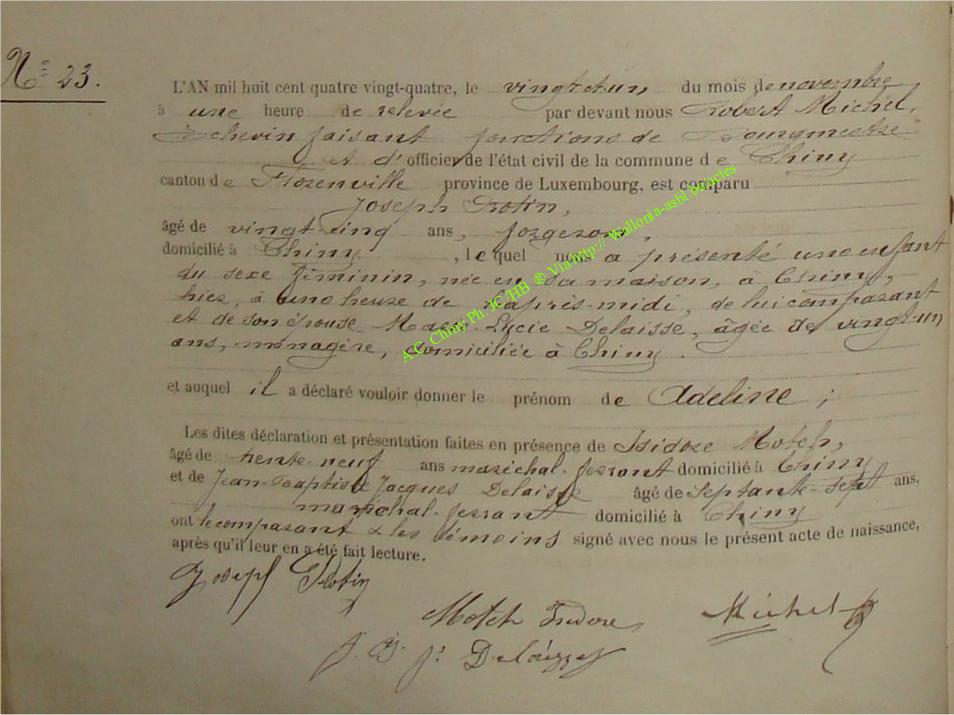 N° 23.
L'AN mil huit cent quatre vingt-quatre, le vingt et un du mois de novembre
à une heure de relevée par devant nous Robert Michel,
Echevin faisant fonctions de Bourgmestre
et d'officier de l'état civil de la commune de Chiny
canton de Florenville province de Luxembourg, est comparu
Joseph
âgé de vingt cinq ans, forgeron,
domicilié à Chiny, lequel nous a présenté une enfant
du sexe féminin, née en sa maison, à Chiny,
hier, à une heure de l'après-midi, de lui comparant
et de son épouse Marie-Lucie Delaisse, âgée de vingt-un
ans, ménagère, domiciliée à Chiny.
et auquel il a déclaré vouloir donner le prénom de Adeline;
Les dites déclaration et présentation faites en présence de Isidore Motch,
âgé de trente-neuf ans maréchal-ferrant domicilié à Chiny
et de Jean-Baptiste Jacques Delaisse âgé de septante-sept ans,
maréchal-ferrant domicilié à Chiny
ont le comparant & les témoins signé avec nous le présent acte de naissance,
après qu'il leur en a été fait lecture.
Joseph
Motch Isidore Michel R
J. B. J.
A.C. Chiny Ph. JC/HB ® Via http://Wallonia-asbl.be/actes